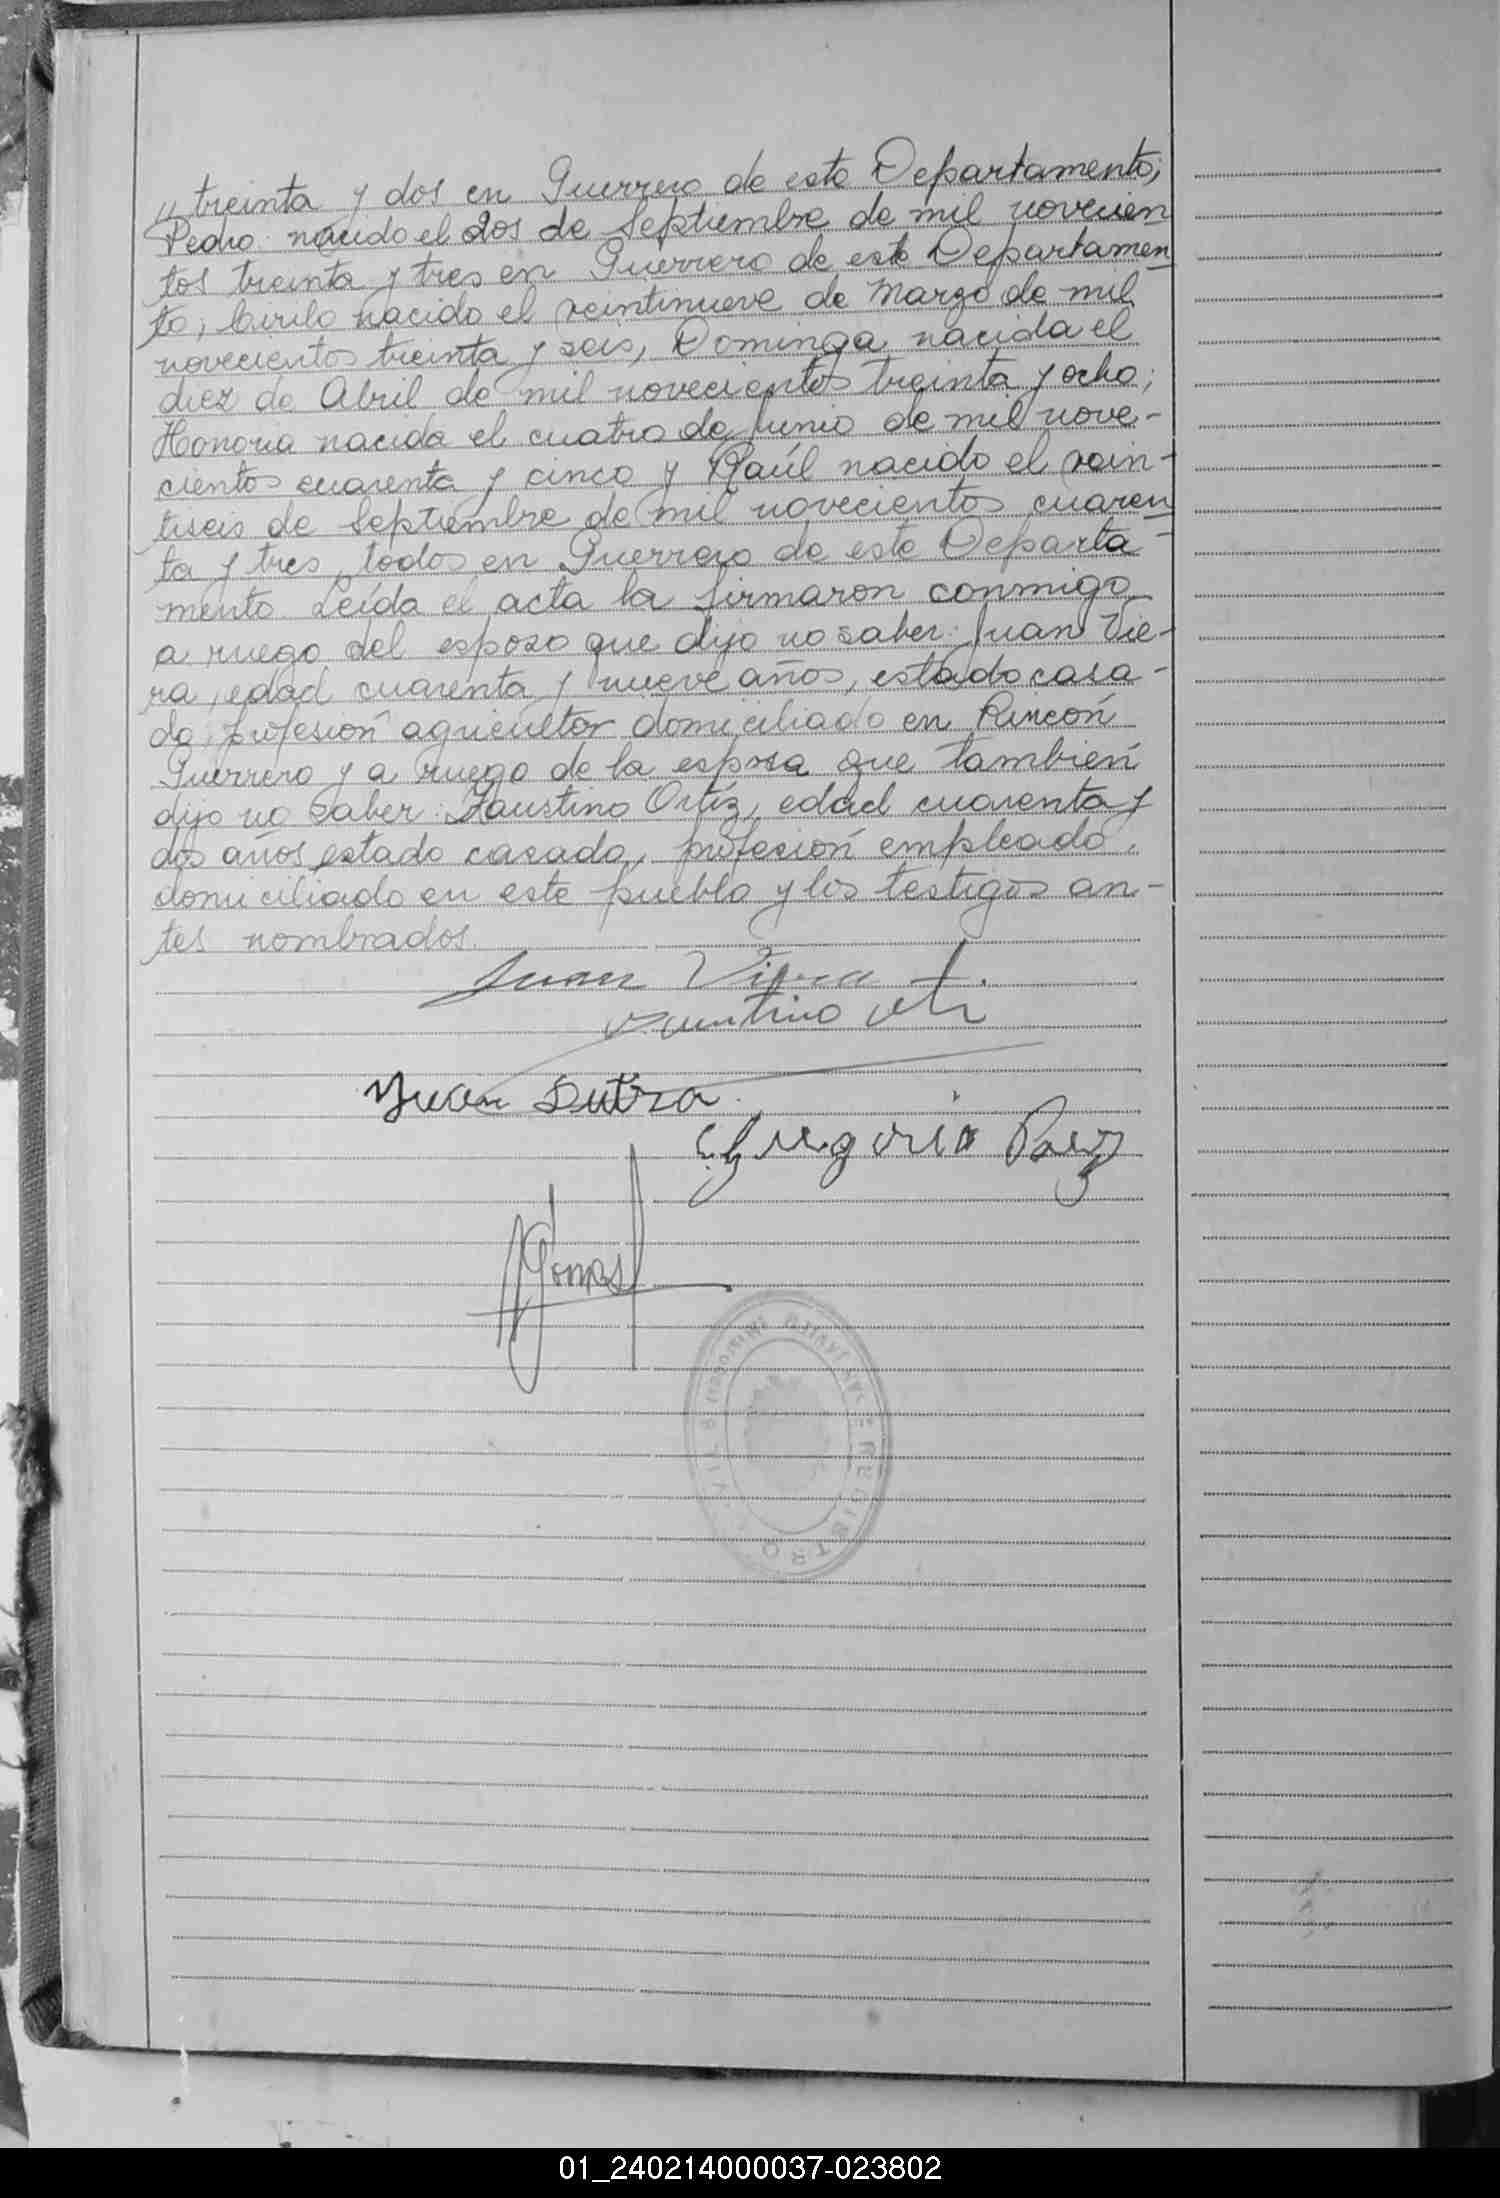 " treinta y dos en Guerrero de este Departamento;
Pedro nacido el dos de Septiembre de mil novecien
tos treinta y tres en Guerrero de este Departamen
to; Cirilo nacido el veintinueve de Marzo de mil
novecientos treinta y seis, Dominga nacida el
diez de Abril de mil novecientos treinta y ocho;
Honoria nacida el cuatro de Junio de mil nove-
cientos cuarenta y cinco y Raúl nacido el vein-
tiseis de Septiembre de mil novecientos cuaren
ta y tres, todos en Guerrero de este Departa-
mento. Leída el acta la firmaron conmigo,
a ruego del esposo que dijo no saber: Juan Vie-
ra, edad cuarenta y nueve años, estado casa-
do, profesión agricultor domiciliado en Rincón
Guerrero y a ruego de la esposa que también
dijo no saber: Faustino Ortíz, edad cuarenta y
dos años, estado casado, profesión empleado,
domiciliado en este pueblo y los testigos an-
tes nombrados.
Juan Viera
Faustino
Juan Dutra
Gregorio Paez
REGISTRO CIVIL
01_240214000037-023802